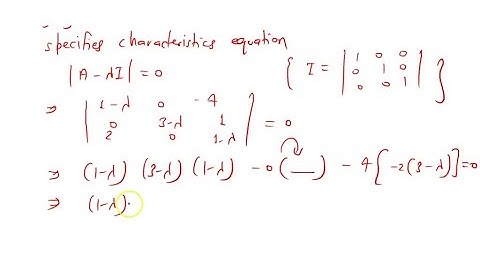 specifies characteristics equation
|A - λI| = 0 { I = | 1 0 0 | }
| 0 1 0 |
| 0 0 1 |
⇒ | 1-λ 0 -4 |
| 0 3-λ 1 | = 0
| 2 0 1-λ |
⇒ (1-λ) (3-λ) (1-λ) - 0 ( __ ) - 4 [ -2 (3-λ) ] = 0
⇒ (1-λ)·